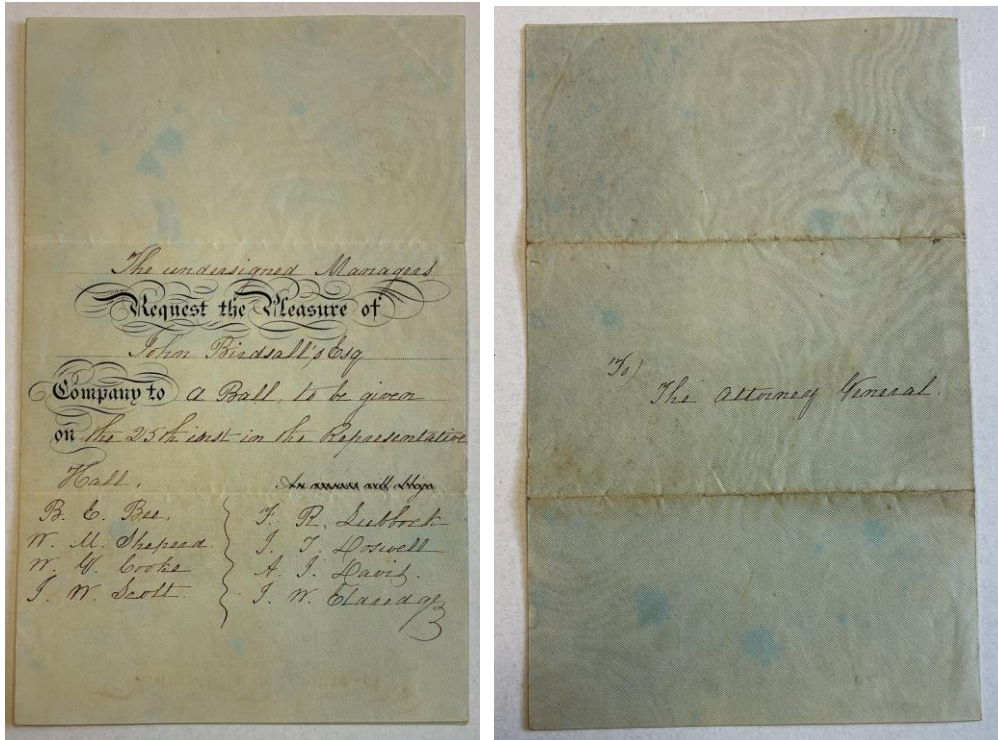 The undersigned Managers
Request the Pleasure of
John Birdsall's Esq
Company to A Ball, to be given
on the 25th inst in the Representative
Hall. An answer will oblige
B. E. Bee.
W. M. Sheperd.
W. G. Cooke
J. W. Scott.
F. R. Lubbock
J. T. Doswell
A. J. Davis.
J. W. Eldredge
To)
The Attorney General.